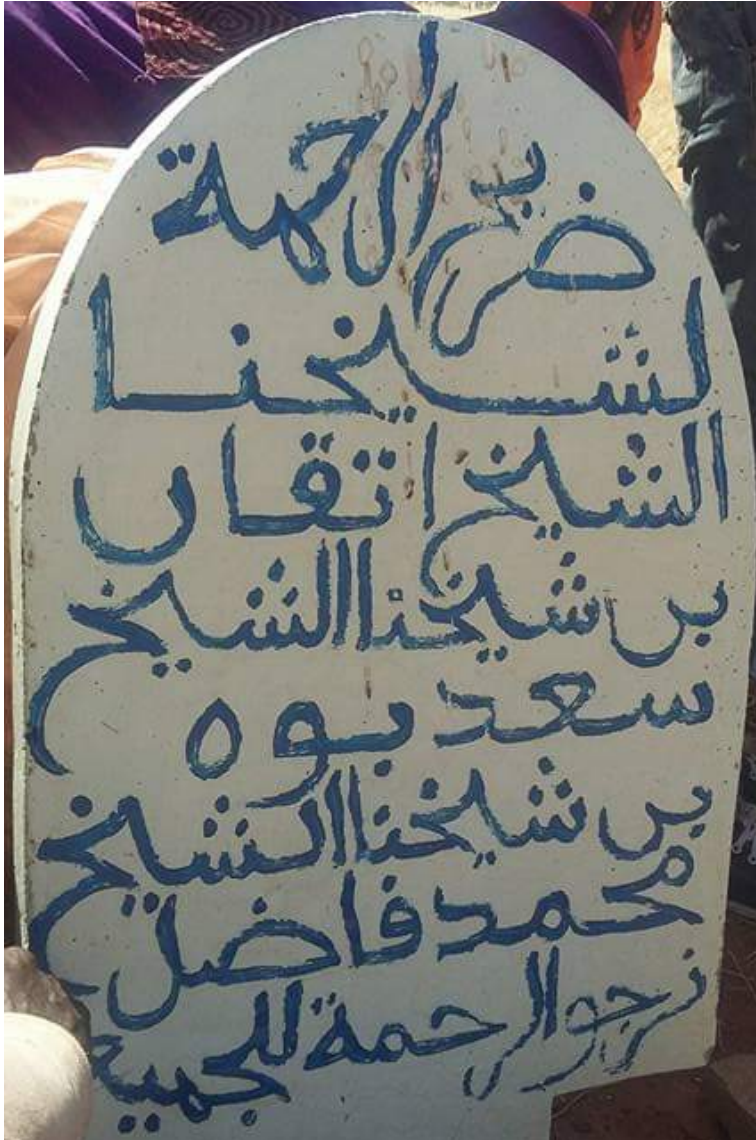 ضريح الرحمة
لشيخنا
الشيخ اتقان
بن شيخنا الشيخ
سعد بوه
بن شيخنا الشيخ
محمد فاضل
نرجو الرحمة للجميع